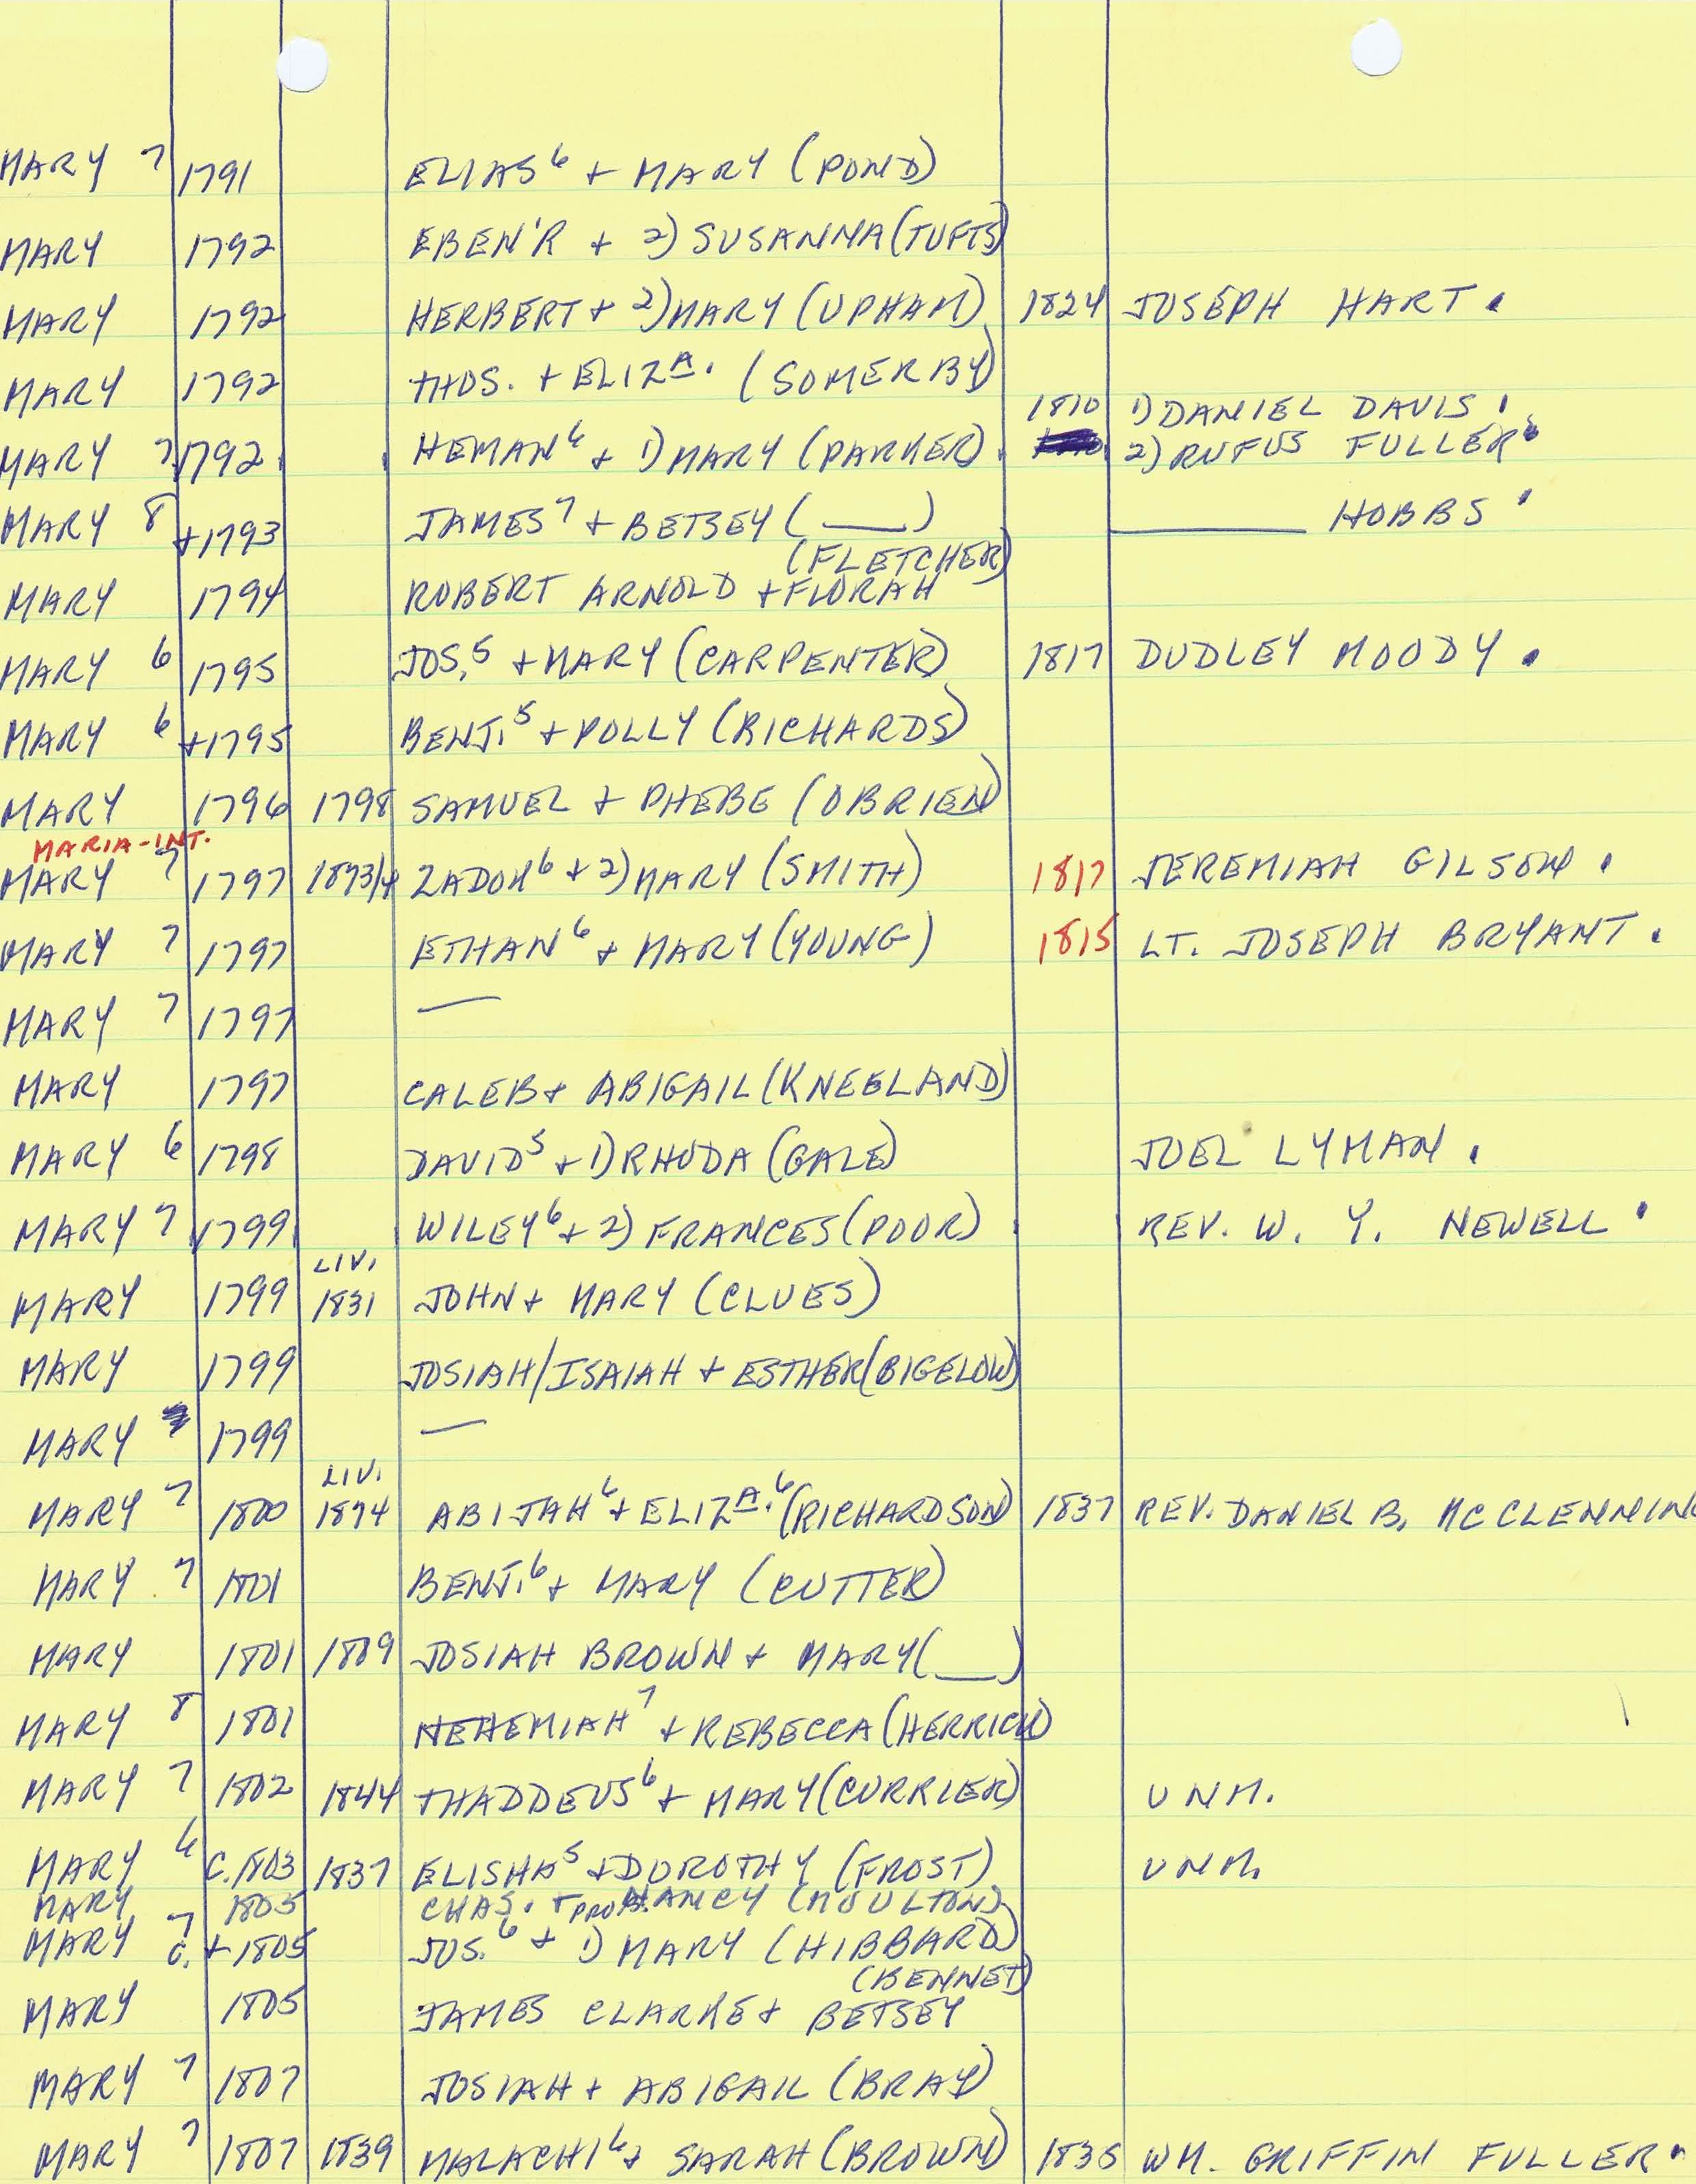 MARY 7 1791 ELIAS6 + MARY (POND)
MARY 1792 EBEN'R + 2) SUSANNA (TUFTS)
MARY 1792 HERBERT + 2) MARY (UPHAM) 1824 JOSEPH HART.
MARY 1792 THOS. + ELIZA. (SOMERBY)
1810 1) DANIEL DAVIS.
MARY 7 1792 HEMAN6 + 1) MARY (PARKER) 2) RUFUS FULLER.
MARY 8 +1793 JAMES7 + BETSEY (___) ______ HOBBS.
(FLETCHER)
MARY 1794 ROBERT ARNOLD + FLORAH
MARY 6 1795 JOS.5 + MARY (CARPENTER) 1817 DUDLEY MOODY.
MARY 6 +1795 BENJ.5 + POLLY (RICHARDS)
MARY 1796 1798 SAMUEL + PHEBE (OBRIEN)
MARIA-INT.
MARY 7 1797 1873/4 ZADOK6 + 2) MARY (SMITH) 1817 JEREMIAH GILSON.
MARY 7 1797 ETHAN6 + MARY (YOUNG) 1815 LT. JOSEPH BRYANT.
MARY 7 1797 —
MARY 1797 CALEB + ABIGAIL (KNEELAND)
MARY 6 1798 DAVID5 + 1) RHODA (GALE) JOEL LYMAN.
MARY 7 1799 WILEY6 + 2) FRANCES (POOR) REV. W. Y. NEWELL.
LIV.
MARY 1799 1831 JOHN + MARY (CLUES)
MARY 1799 JOSIAH/ISAIAH + ESTHER (BIGELOW)
MARY 1799 —
LIV.
MARY 7 1800 1874 ABIJAH6 + ELIZA.6 (RICHARDSON) 1837 REV. DANIEL B. MCCLENNING
MARY 7 1801 BENJ.6 + MARY (CUTTER)
MARY 1801 1809 JOSIAH BROWN + MARY (___)
MARY 8 1801 NEHEMIAH7 + REBECCA (HERRICK)
MARY 7 1802 1844 THADDEUS6 + MARY (CURRIER) UNM.
MARY 6 C.1803 1837 ELISHA5 + DOROTHY (FROST) UNM.
MARY 1805 CHAS. + PROB. NANCY (MOULTON)
MARY 7 C. +1805 JOS.6 + 1) MARY (HIBBARD)
(BENNET)
MARY 1805 JAMES CLARKE + BETSEY
MARY 7 1807 JOSIAH + ABIGAIL (BRAY)
MARY 7 1807 1839 MALACHI6 + SARAH (BROWN) 1835 WM. GRIFFIN FULLER.